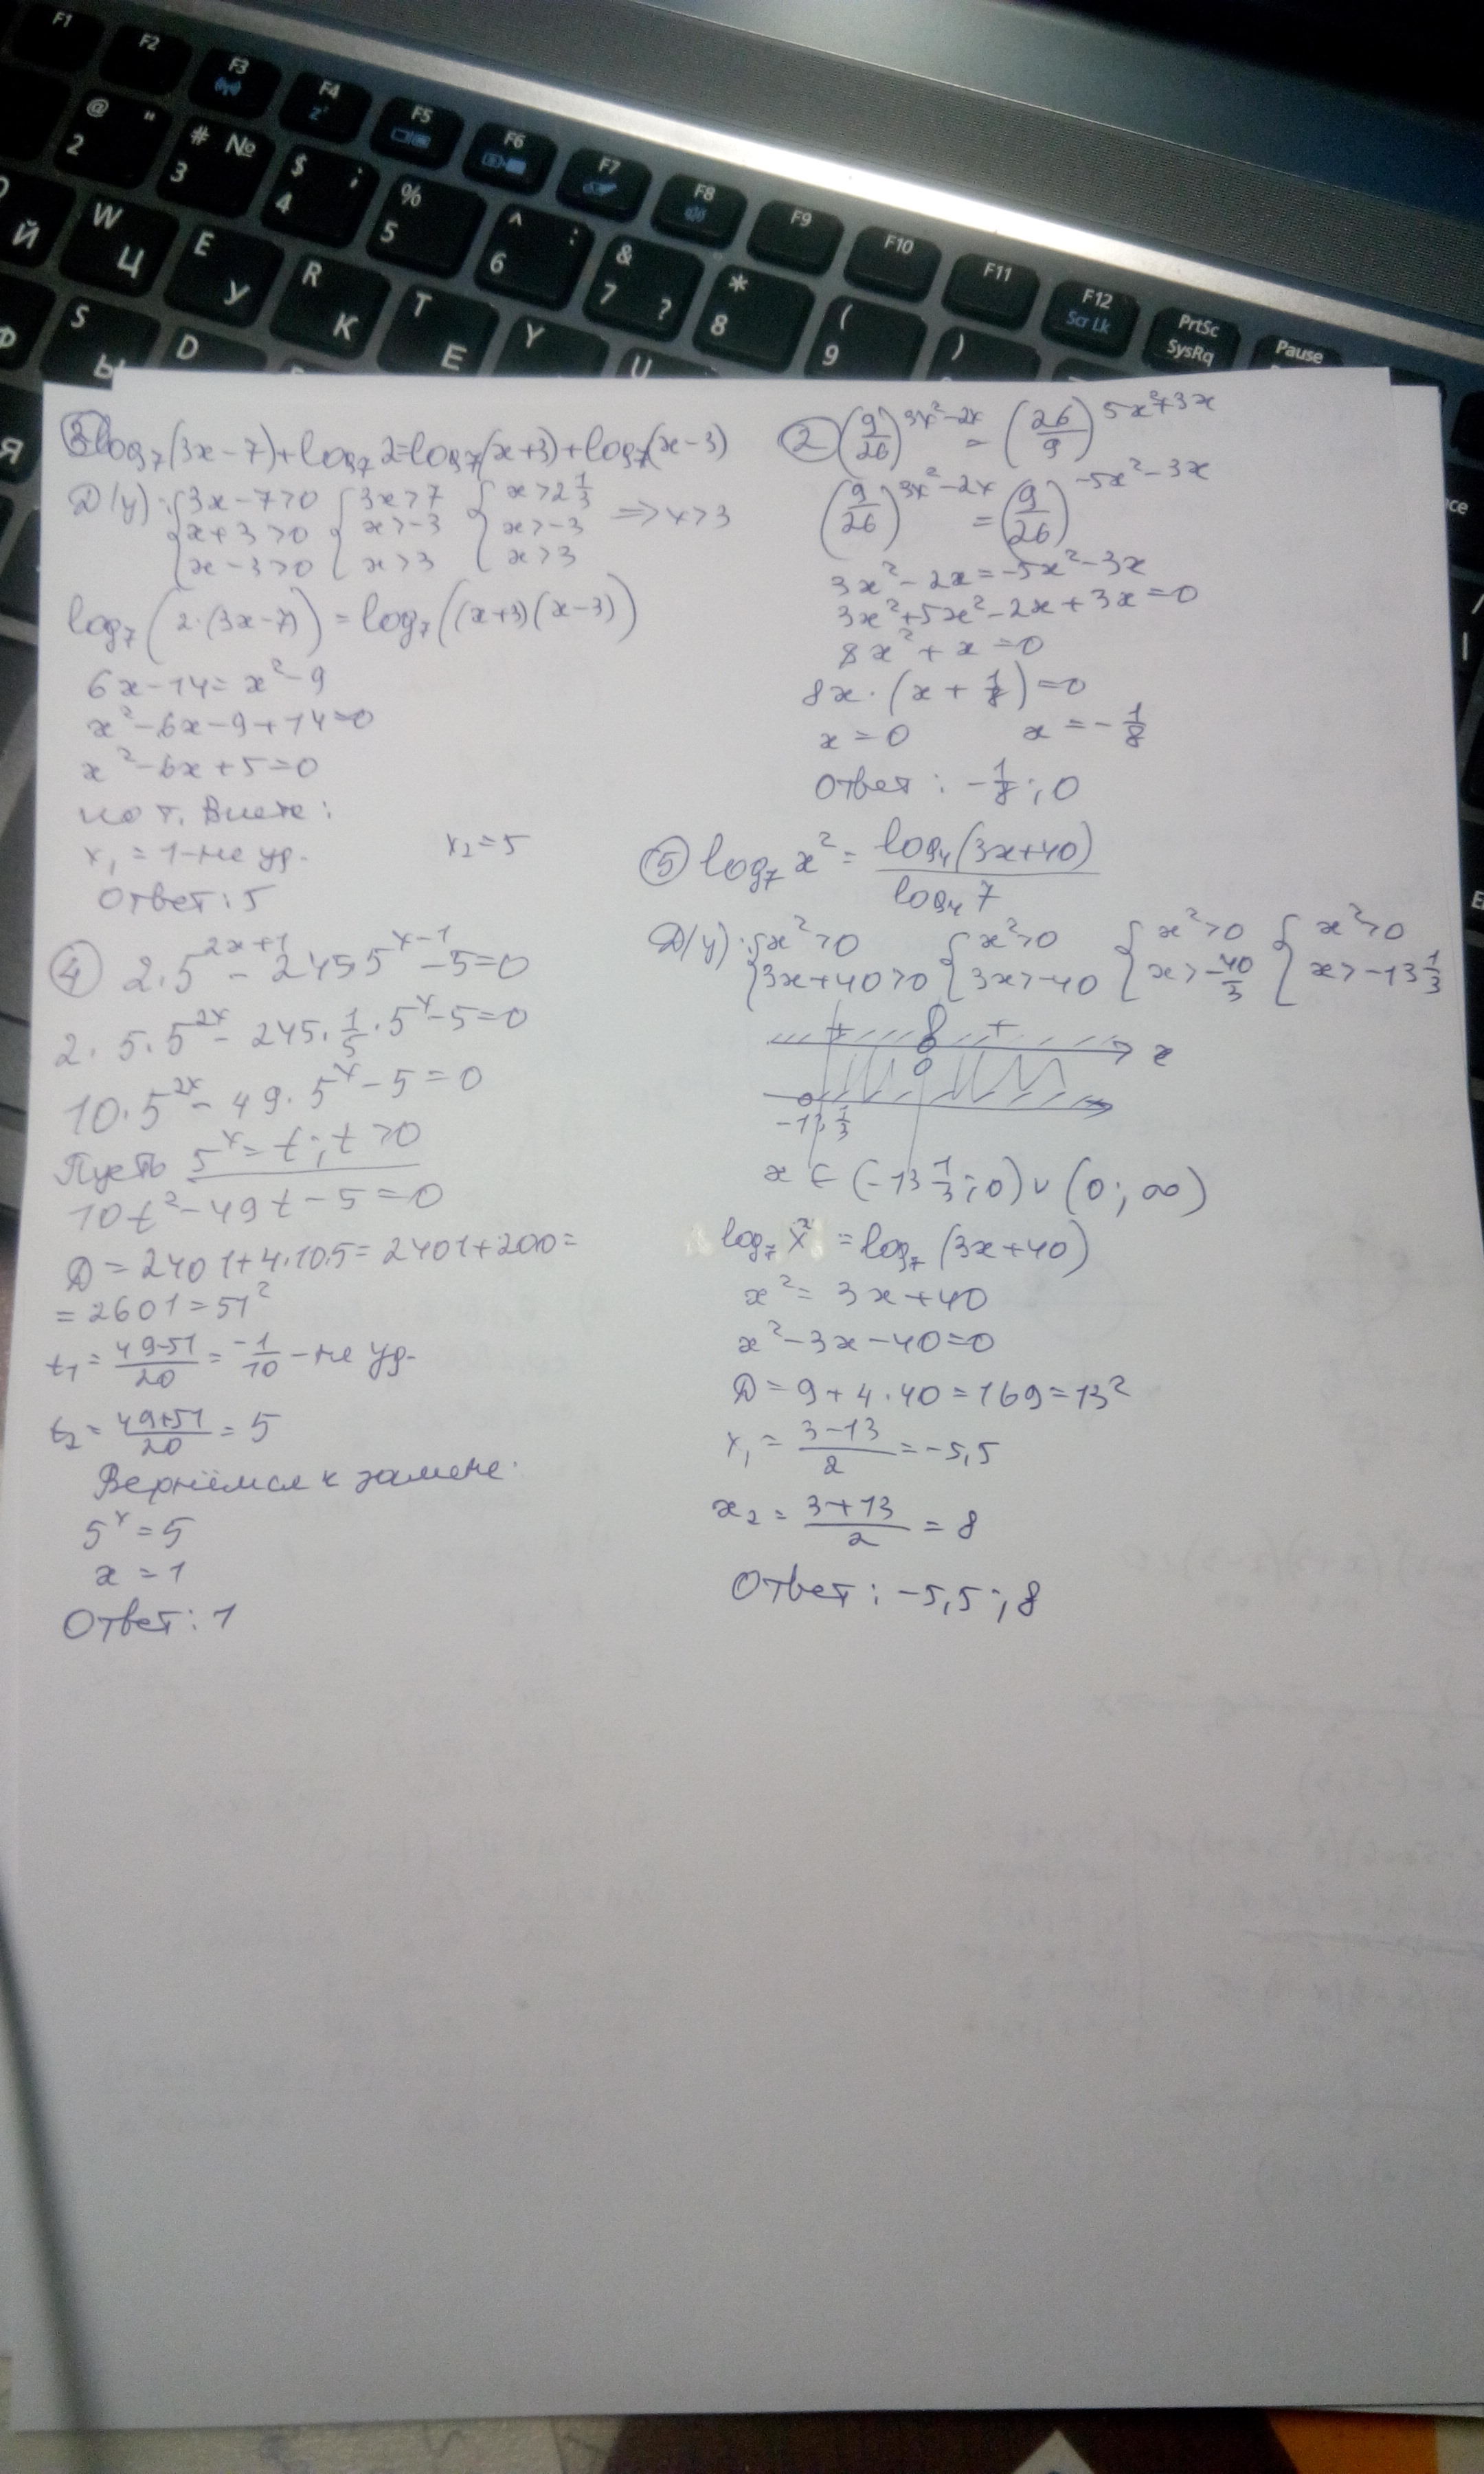 F1 F2 F3 F4 F5 F6 F7 F8 F9 F10 F11 F12 PrtSc Pause
Scr Lk SysRq
@ " 2 # № 3 $ ; 4 % 5 ^ : 6 & 7 ? * 8 ( 9 )
Й W Ц E У R К T Е Y U
Ф S Ы D
Я
③ log₇(3x-7)+log₇2=log₇(x+3)+log₇(x-3)
D(y): {3x-7>0 {3x>7 {x>2 1/3
x+3>0 x>-3 x>-3 => x>3
x-3>0 x>3 x>3
log₇(2·(3x-7))=log₇((x+3)(x-3))
6x-14=x²-9
x²-6x-9+14=0
x²-6x+5=0
по т. Виета:
x₁=1-не уд. x₂=5
Ответ: 5
④ 2·5^(2x+1)-245·5^(x-1)-5=0
2·5·5^(2x)-245·1/5·5^x-5=0
10·5^(2x)-49·5^x-5=0
Пусть 5^x=t; t>0
10t²-49t-5=0
D=2401+4·10·5=2401+200=
=2601=51²
t₁=(49-51)/20=-1/10-не уд.
t₂=(49+51)/20=5
Вернёмся к замене.
5^x=5
x=1
Ответ: 1
② (9/26)^(3x²-2x)=(26/9)^(5x²+3x)
(9/26)^(3x²-2x)=(9/26)^(-5x²-3x)
3x²-2x=-5x²-3x
3x²+5x²-2x+3x=0
8x²+x=0
8x·(x+1/8)=0
x=0 x=-1/8
Ответ: -1/8; 0
⑤ log₇x²=log₄(3x+40)/log₄7
D(y): {x²>0 {x²>0 {x²>0 {x²>0
3x+40>0 3x>-40 x>-40/3 x>-13 1/3
+ + x
0
-13 1/3
x∈(-13 1/3; 0)∪(0; ∞)
log₇x²=log₇(3x+40)
x²=3x+40
x²-3x-40=0
D=9+4·40=169=13²
x₁=(3-13)/2=-5,5
x₂=(3+13)/2=8
Ответ: -5,5; 8